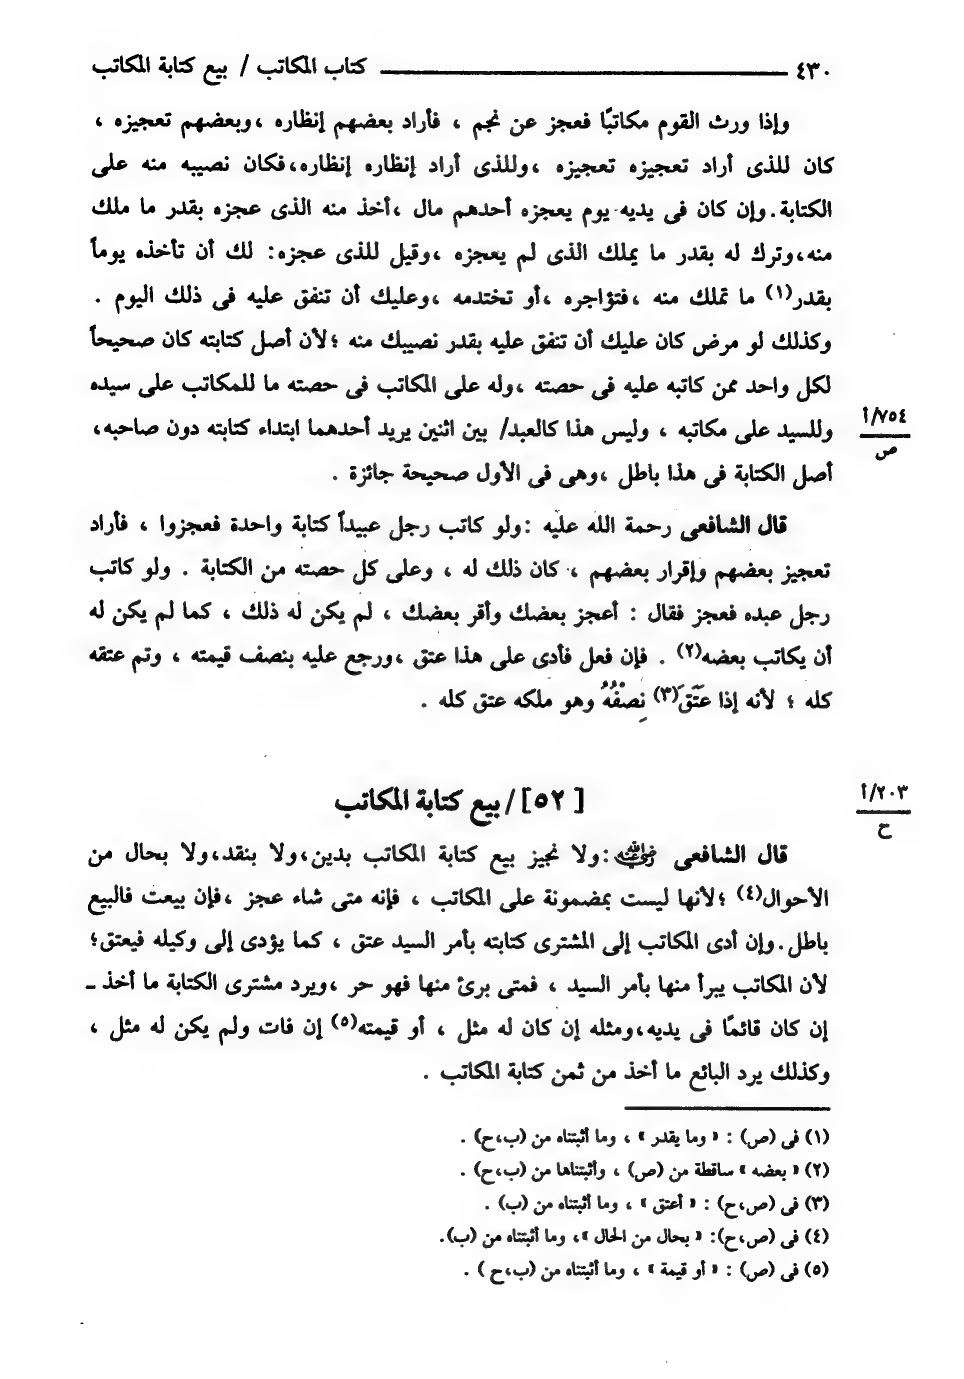 ٤٣٠ ـــــــــــــــــ كتاب المكاتب / بيع كتابة المكاتب
وإذا ورث القوم مكاتبًا فعجز عن نجم ، فأراد بعضهم إنظاره ،وبعضهم تعجيزه ،
كان للذى أراد تعجيزه تعجيزه ،وللذى أراد إنظاره إنظاره،فكان نصيبه منه على
الكتابة.وإن كان فى يديه يوم يعجزه أحدهم مال ،أخذ منه الذى عجزه بقدر ما ملك
منه،وترك له بقدر ما يملك الذى لم يعجزه ،وقيل للذى عجزه: لك أن تأخذه يوماً
بقدر(١) ما تملك منه ،فتؤاجره ،أو تختدمه ،وعليك أن تنفق عليه فى ذلك اليوم .
وكذلك لو مرض كان عليك أن تنفق عليه بقدر نصيبك منه ؛لأن أصل كتابته كان صحيحاً
لكل واحد ممن كاتبه عليه فى حصته ،وله على المكاتب فى حصته ما للمكاتب على سيده
وللسيد على مكاتبه ، وليس هذا كالعبد/ بين اثنين يريد أحدهما ابتداء كتابته دون صاحبه،
٧٥٤/أ
ص
أصل الكتابة فى هذا باطل ،وهى فى الأول صحيحة جائزة .
قال الشافعى رحمة الله عليه :ولو كاتب رجل عبيداً كتابة واحدة فعجزوا ، فأراد
تعجيز بعضهم وإقرار بعضهم ، كان ذلك له ، وعلى كل حصته من الكتابة . ولو كاتب
رجل عبده فعجز فقال : أعجز بعضك وأقر بعضك ، لم يكن له ذلك ، كما لم يكن له
أن يكاتب بعضه(٢) . فإن فعل فأدى على هذا عتق ،ورجع عليه بنصف قيمته ، وتم عتقه
كله ؛ لأنه إذا عَتَقَ(٣) نِصْفُهُ وهو ملكه عتق كله .
[ ٥٢] / بيع كتابة المكاتب
٢٠٣/أ
ح
قال الشافعى رضي الله عنه :ولا نجيز بيع كتابة المكاتب بدين،ولا بنقد،ولا بحال من
الأحوال(٤) ؛لأنها ليست بمضمونة على المكاتب ، فإنه متى شاء عجز ،فإن بيعت فالبيع
باطل.وإن أدى المكاتب إلى المشترى كتابته بأمر السيد عتق ، كما يؤدى إلى وكيله فيعتق؛
لأن المكاتب يبرأ منها بأمر السيد ، فمتى برئ منها فهو حر ،ويرد مشترى الكتابة ما أخذ ــ
إن كان قائمًا فى يديه،ومثله إن كان له مثل ، أو قيمته(٥) إن فات ولم يكن له مثل ،
وكذلك يرد البائع ما أخذ من ثمن كتابة المكاتب .
(١) فى (ص) : « وما يقدر » ، وما أثبتناه من (ب،ح) .
(٢) « بعضه » ساقطة من (ص) ، وأثبتناها من (ب،ح) .
(٣) فى (ص،ح): « أعتق » ، وما أثبتناه من (ب) .
(٤) فى (ص،ح): « بحال من الحال »، وما أثبتناه من (ب).
(٥) فى (ص) : « أو قيمة » ، وما أثبتناه من (ب،ح ) .